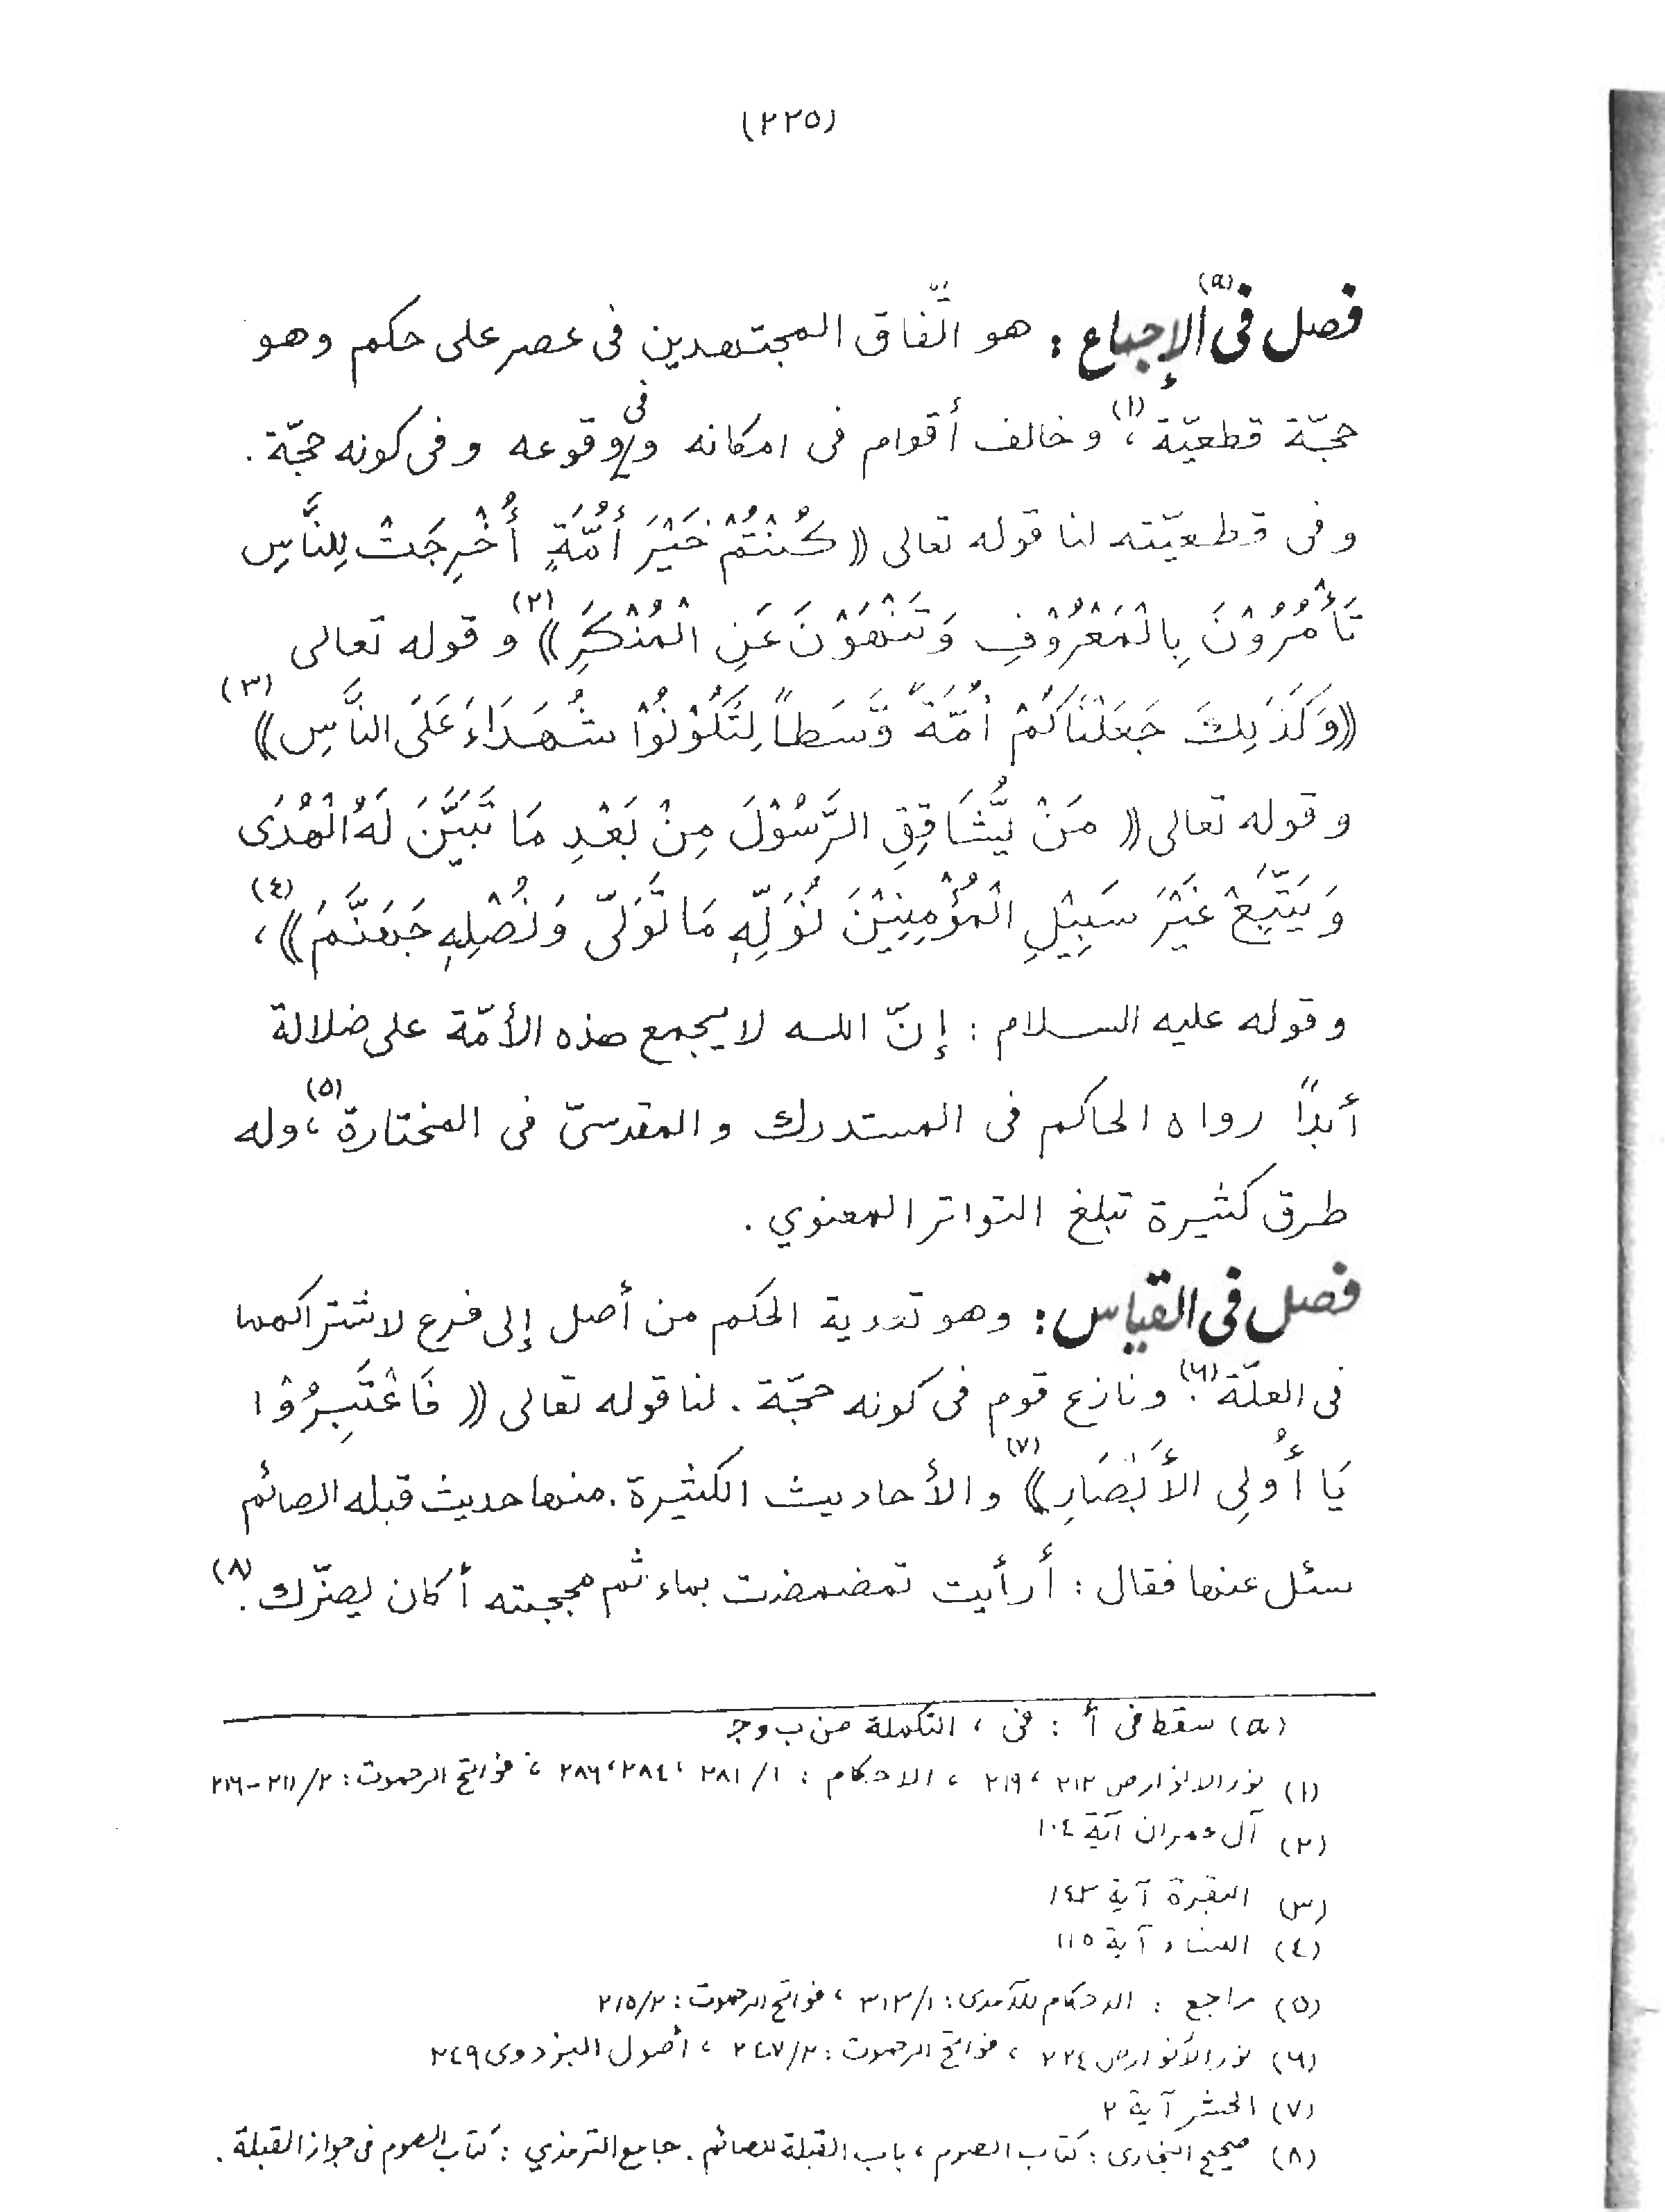 (٢٢٥)
فصل فى(a) الإجماع : هو اتّفاق المجتهدين فى عصر على حكم وهو
حجّة قطعيّة(١)، وخالف أقوام فى امكانه و فى وقوعه و فى كونه حجّة .
و فى قطعيّته لنا قوله تعالى ((كُنْتُمْ خَيْرَ أُمَّةٍ أُخْرِجَتْ لِلنَّاسِ
تَأْمُرُوْنَ بِالْمَعْرُوْفِ وَتَنْهَوْنَ عَنِ الْمُنْكَرِ))(٢) و قوله تعالى
((وَكَذَلِكَ جَعَلْنَاكُمْ أُمَّةً وَّسَطاً لِتَكُوْنُوْا شُهَدَاءَ عَلَى النَّاسِ))(٣)
و قوله تعالى (( مَنْ يُّشَاقِقِ الرَّسُوْلَ مِنْ بَعْدِ مَا تَبَيَّنَ لَهُ الْهُدَى
وَيَتَّبِعْ غَيْرَ سَبِيْلِ الْمُؤْمِنِيْنَ نُوَلِّهِ مَا تَوَلّى وَنُصْلِهِ جَهَنَّمَ))(٤)،
و قوله عليه السلام : إنّ الله لا يجمع هذه الأمّة على ضلالة
أبداً رواه الحاكم فى المستدرك والمقدسىّ فى المختارة(٥)، وله
طرق كثيرة تبلغ التواتر المعنوي .
فصل فى القياس : وهو تعدية الحكم من أصل إلى فرع لاشتراكهما
فى العلّة(٦). ونازع قوم فى كونه حجّة . لنا قوله تعالى (( فَاعْتَبِرُوْا
يَا أُولِى الأَبْصَارِ))(٧) والأحاديث الكثيرة . منها حديث قبله الصائم
سئل عنها فقال : أرأيت تمضمضت بماء ثم مججته أكان يضرّك .(٨)
(a) سقط فى أ : فى ، التكملة من ب وجـ
(١) نور الانوار ص ٢١٢ ، ٢١٩ ، الاحكام : ١/ ٢٨١ ، ٢٨٤ ، ٢٨٦ ، فواتح الرحموت : ٢/ ٢١١-٢١٦
(٢) آل عمران آية ١٠٤
(٣) البقرة آية ١٤٣
(٤) النساء آية ١١٥
(٥) راجع : الاحكام للآمدى : ١/ ٣١٣ ، فواتح الرحموت : ٢/ ٢١٥
(٦) نور الأنوار ص ٢٢٤ ، فواتح الرحموت : ٢/ ٢٤٧ ، أصول البزدوى ٢٤٩
(٧) الحشر آية ٢
(٨) صحيح البخارى : كتاب الصوم ، باب القبلة للصائم . جامع الترمذي : كتاب الصوم فى جواز القبلة .